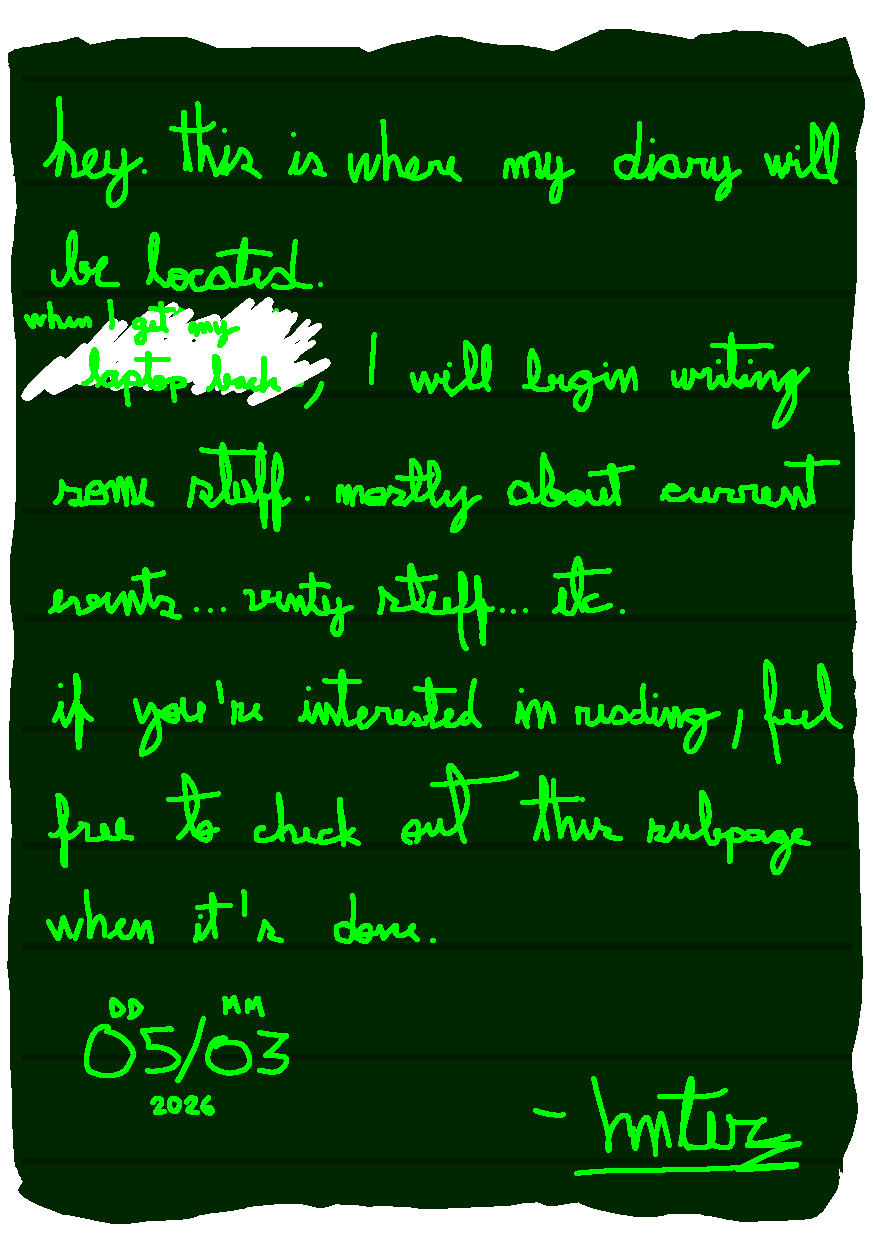 hey. this is where my diary will
be located.
when I get my
laptop back, I will begin writing
some stuff. mostly about current
events... venty stuff... etc.
if you're interested in reading, feel
free to check out this subpage
when it's done.
DD MM
05/03
2026